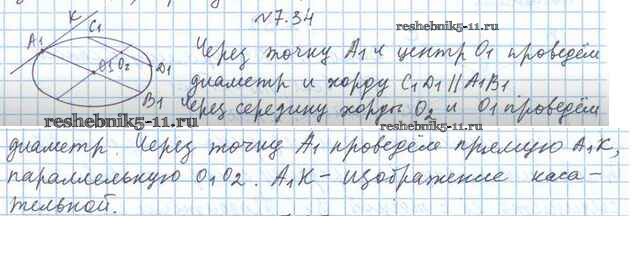 №7.34
reshebnik5-11.ru
K
A1
C1
O1
O2
D1
B1
Через точку A1 и центр O1 проведём
диаметр и хорду C1D1 || A1B1
Через середину хорды O2 и O1 проведём
reshebnik5-11.ru
reshebnik5-11.ru
диаметр. Через точку A1 проведём прямую A1K,
параллельную O1O2. A1K - изображение каса-
тельной.